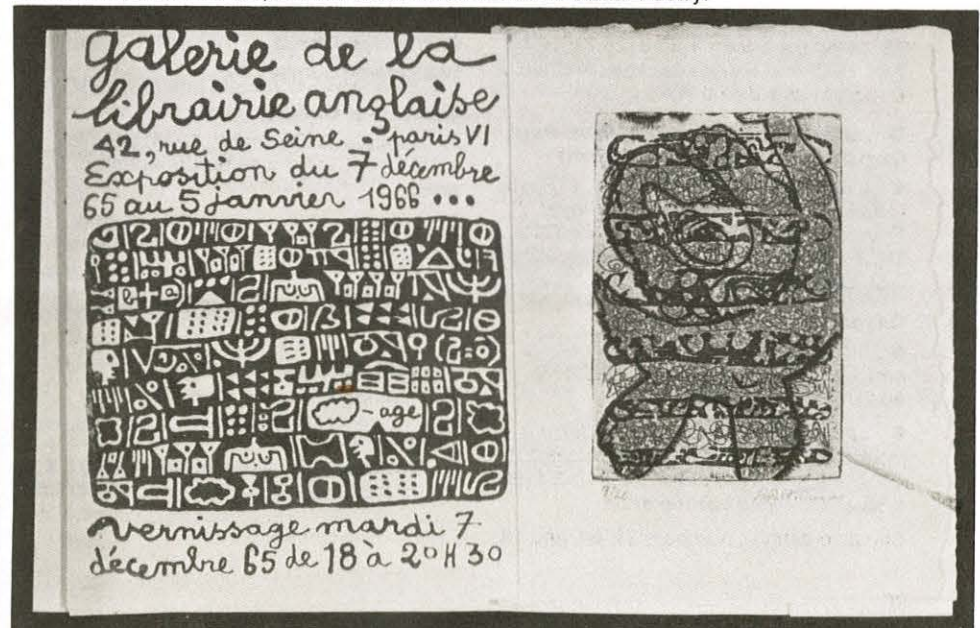 galerie de la
librairie anglaise
42, rue de Seine - paris VI
Exposition du 7 décembre
65 au 5 janvier 1966 ...
- age
vernissage mardi 7
décembre 65 de 18 à 20H30